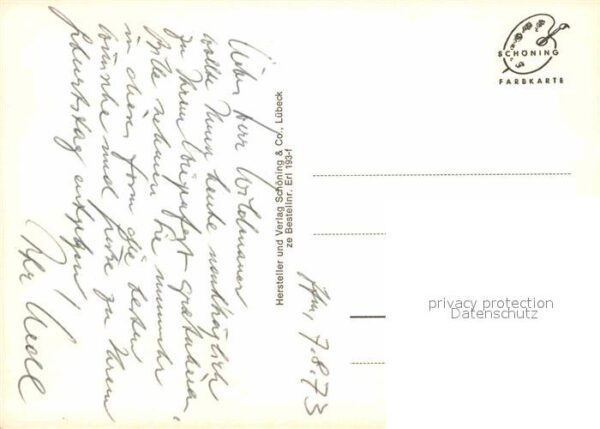 Lieber Herr Wildmauer
wollte Ihnen heute nachträglich
zu Ihrem gratulieren.
Bitte nehmen Sie nunmehr
in dieser Form die besten
Wünsche und Grüße zu Ihrem
Geburtstag entgegen!
Ihr
7.8.73
Hersteller und Verlag Schöning & Co., Lübeck
ze Bestellnr. Erl 193-f
SCHÖNING
FARBKARTE
privacy protection
Datenschutz